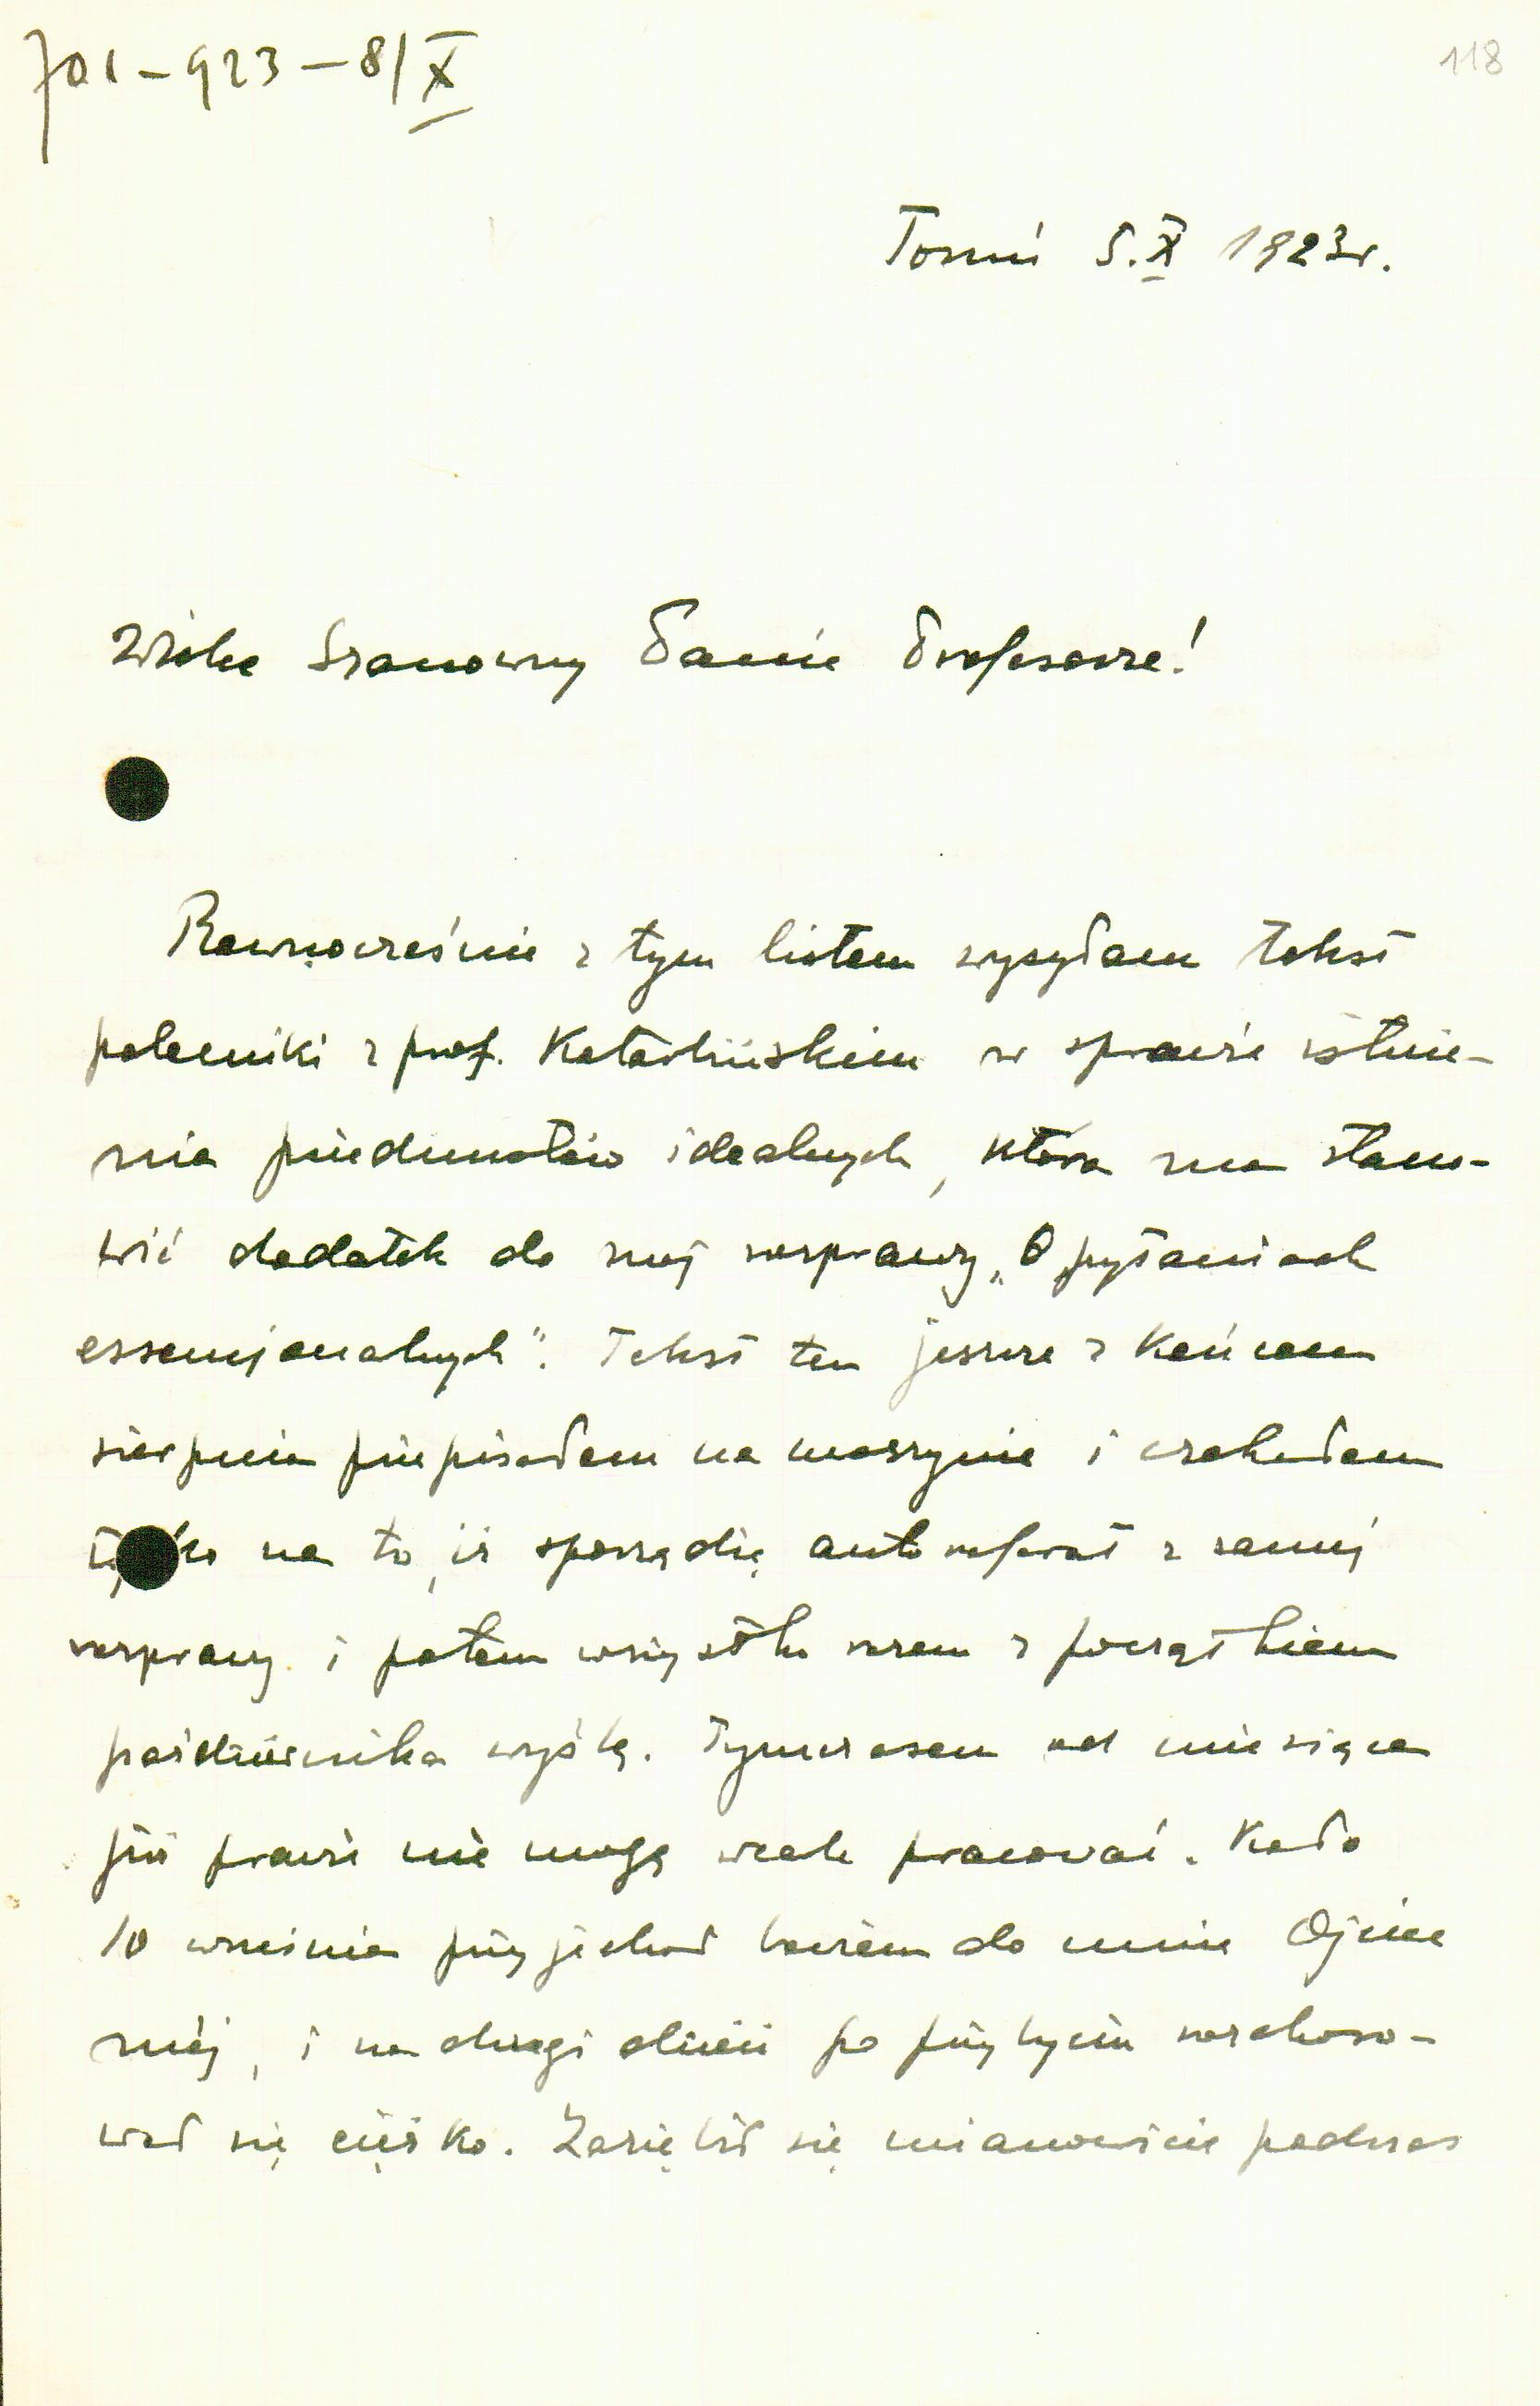 701-923-8/X
118
Toruń 5.X 1923r.
Wielce Szanowny Panie Profesorze!
Równocześnie z tym listem wysyłam tekst
polemiki z prof. Kotarbińskim w sprawie istnie-
nia przedmiotów idealnych, która ma stano-
wić dodatek do mej rozprawy „O pytaniach
essencjonalnych". Tekst ten jeszcze z końcem
sierpnia przepisałem na maszynie i czekałem
tylko na to, iż sporządzę autoreferat z samej
rozprawy i potem wszystko razem z początkiem
października wyślę. Tymczasem od miesiąca
już prawie nie mogę wcale pracować. Koło
10 września przyjechał bowiem do mnie Ojciec
mój, i na drugi dzień po przybyciu rozchoro-
wał się ciężko. Zaziębił się mianowicie podczas